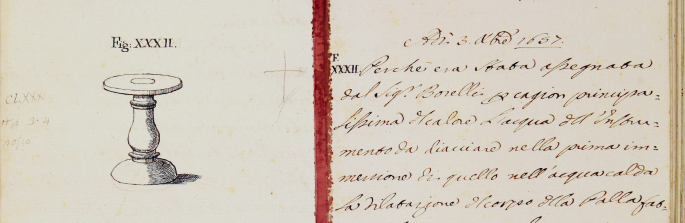 Fig: XXXII.
CLXXX
Adì. 3. Xbre 1657.
F.
XXXII. Perche era stata assegnata
dal Sigr. Borelli p cagion principa=
lissima di calore l'acqua dell' Instru=
mento da diacciare nella prima im=
mersione di quello nell'acqua calda
la dilatazione di corpo della Palla fab=